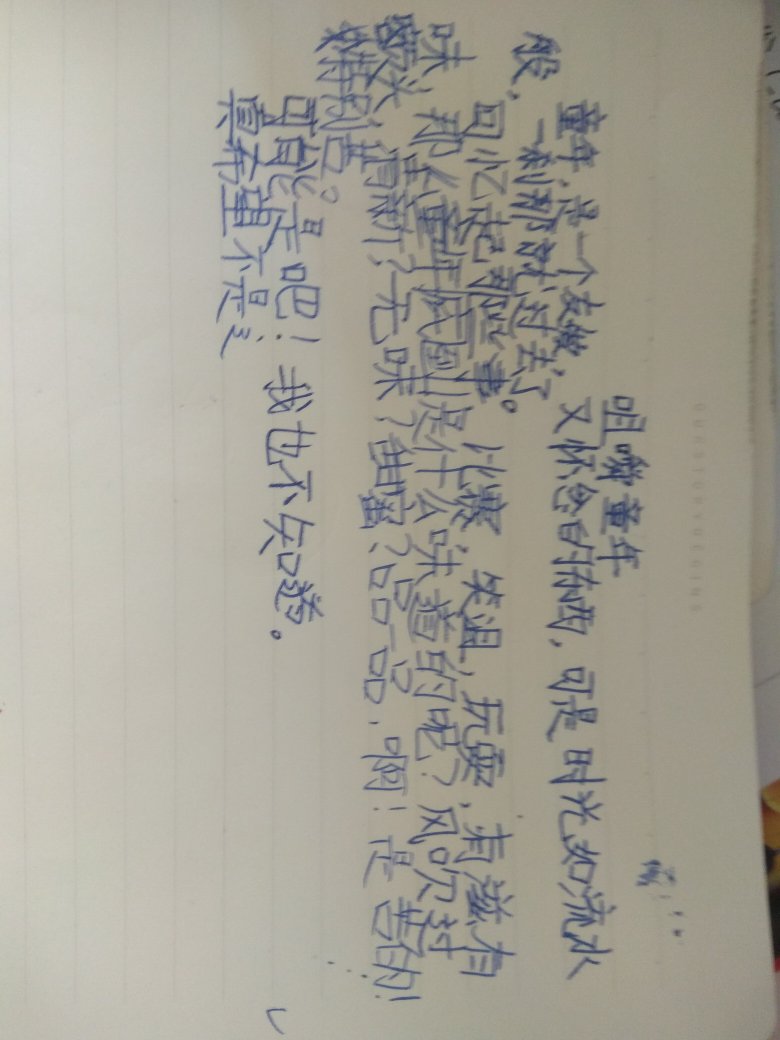 咀嚼童年
童年,是一个友傲,又怀念的东西,可是时光如流水
般,一刹那就过去了
回忆起那些事。比赛,笑逗,玩耍,有滋有
味,那么童年风图是什么味道的呢?风吹过
清新?无味?甜蜜?品一品,啊!是苦的!
特别苦。
可能是吧!我也不知道。
真希望不是